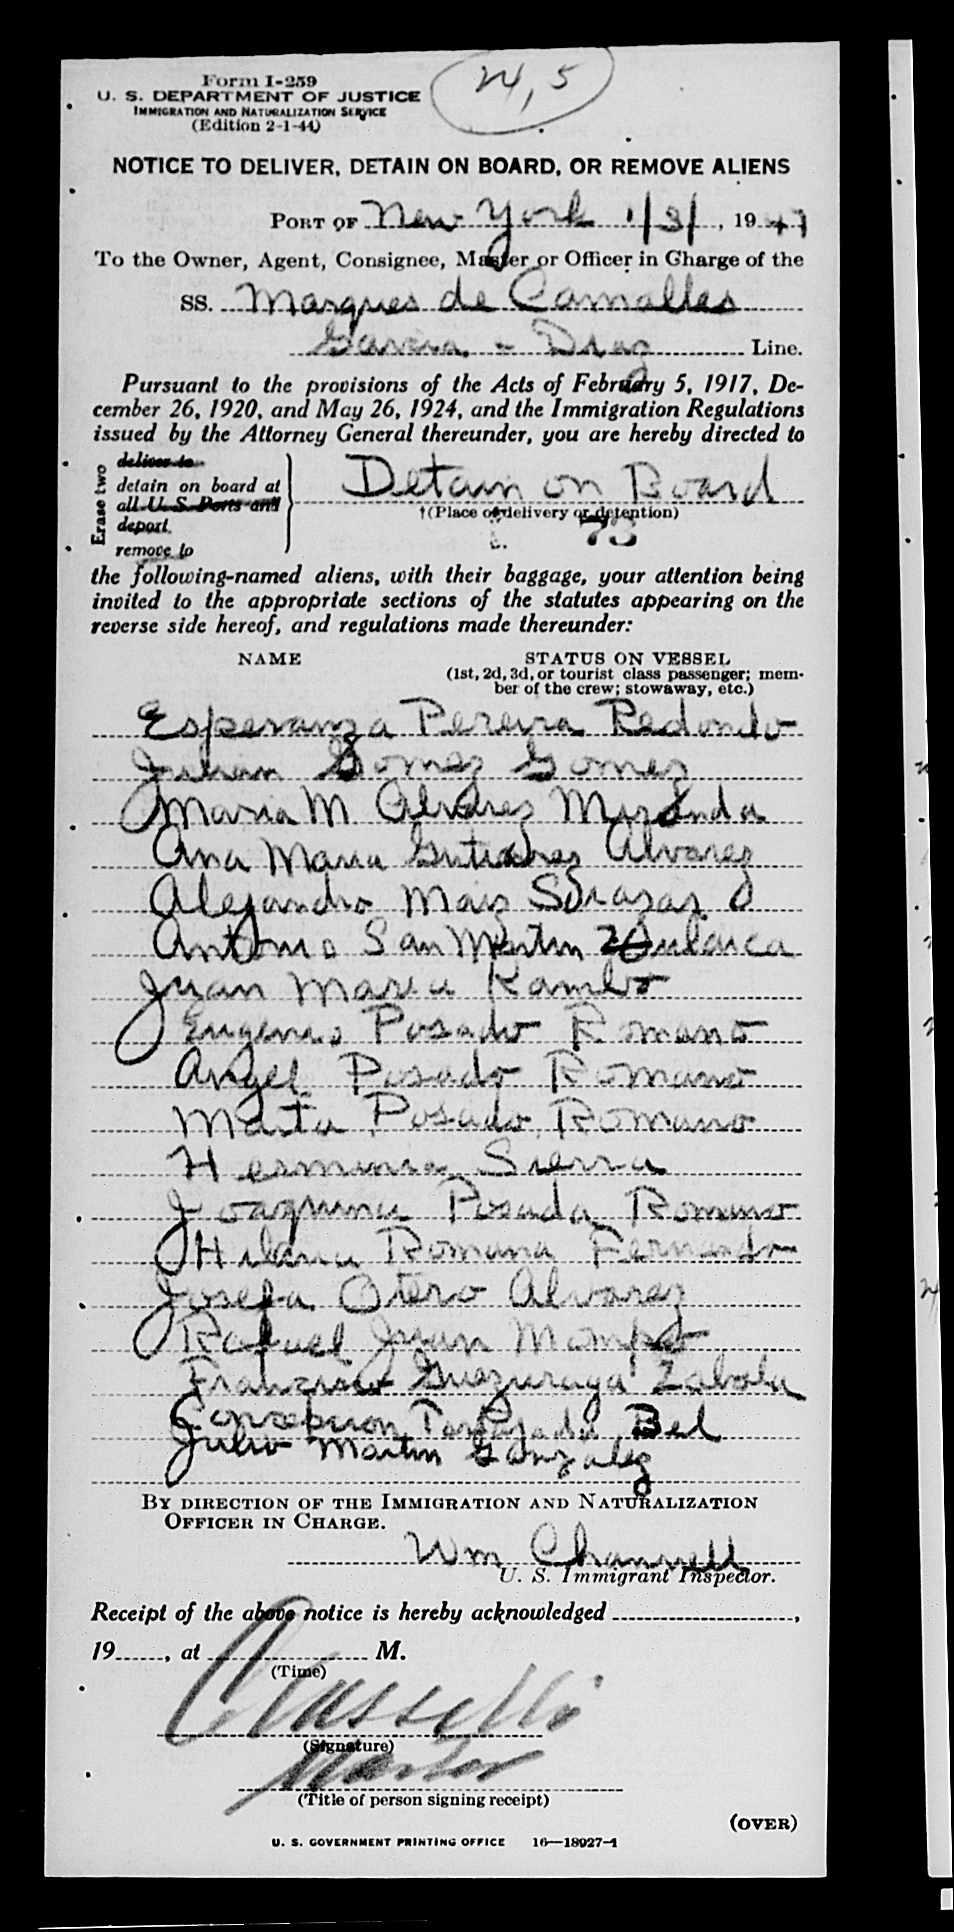 24, 5
Form I-259
U. S. DEPARTMENT OF JUSTICE
IMMIGRATION AND NATURALIZATION SERVICE
(Edition 2-1-44)
NOTICE TO DELIVER, DETAIN ON BOARD, OR REMOVE ALIENS
PORT OF New York 1/3/, 1947
To the Owner, Agent, Consignee, Master or Officer in Charge of the
SS. Marques de Comalles
Garcia - Diaz Line.
Pursuant to the provisions of the Acts of February 5, 1917, De-
cember 26, 1920, and May 26, 1924, and the Immigration Regulations
issued by the Attorney General thereunder, you are hereby directed to
Erase two
deliver to
detain on board at
all U S Ports and
deport
remove to
Detain on Board
†(Place of delivery or detention)
73
the following-named aliens, with their baggage, your attention being
invited to the appropriate sections of the statutes appearing on the
reverse side hereof, and regulations made thereunder:
NAME STATUS ON VESSEL
(1st, 2d, 3d, or tourist class passenger; mem-
ber of the crew; stowaway, etc.)
Esperanza Pereira Redondo
Julian Gomez Gomez
Maria M Alvarez Miranda
Ana Maria Gutierrez Alvarez
Alejandro Maiz
Antonio San Martin
Juan Maria
Eugenio Posado Romano
Angel Posado Romano
Marta Posado Romano
Herminia Sierra
Joaquina Posada Romano
Hilaria Romana
Josefa Otero Alvarez
Rafael Juan Mompo
Francisco Guezuraga Zabala
Concepcion Bel
Julio Martin Gonzalez
BY DIRECTION OF THE IMMIGRATION AND NATURALIZATION
OFFICER IN CHARGE.
Wm Channell
U. S. Immigrant Inspector.
Receipt of the above notice is hereby acknowledged ,
19 , at M.
(Time)
(Signature)
Master
(Title of person signing receipt)
(OVER)
U. S. GOVERNMENT PRINTING OFFICE 16—18927-1